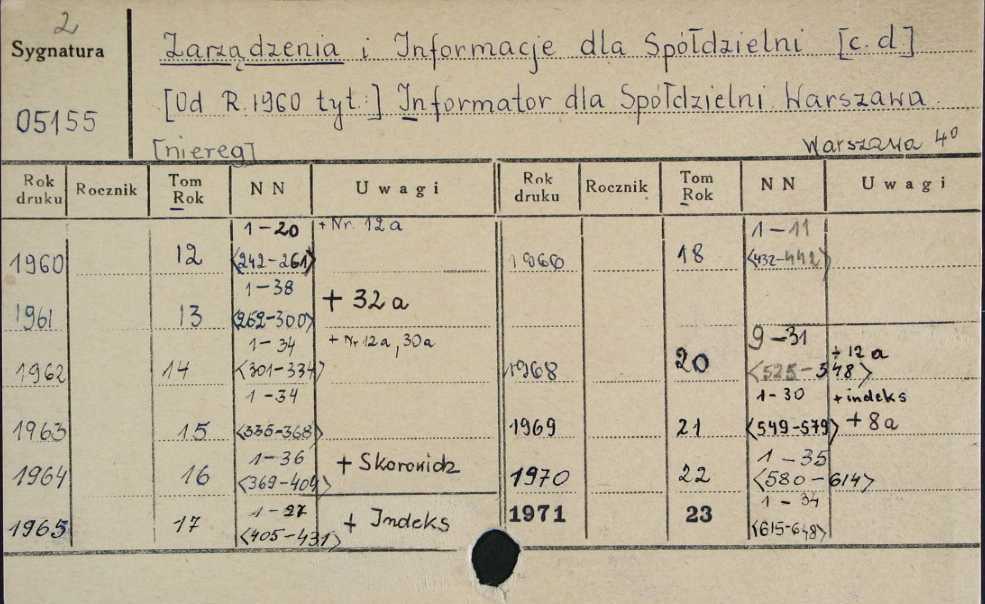 2
Sygnatura
05155
Zarządzenia i Informacje dla Spółdzielni [c.d.]
[Od R.1960 tyt.:] Informator dla Spółdzielni. Warszawa.
[niereg] Warszawa 4º
Rok druku Rocznik Tom Rok NN Uwagi Rok druku Rocznik Tom Rok NN Uwagi
1960 12 1-20 <242-261> + Nr. 12a 1966 18 1-11 <432-442>
1961 13 1-38 <262-300> + 32a
1962 14 1-34 <301-334> + Nr 12a, 30a 1968 20 9-31 <525-548> + 12a
1963 15 1-34 <335-368> 1969 21 1-30 <549-579> + indeks + 8a
1964 16 1-36 <369-404> + Skorowidz 1970 22 1-35 <580-614>
1965 17 1-27 <405-431> + Indeks 1971 23 1-34 <615-648>